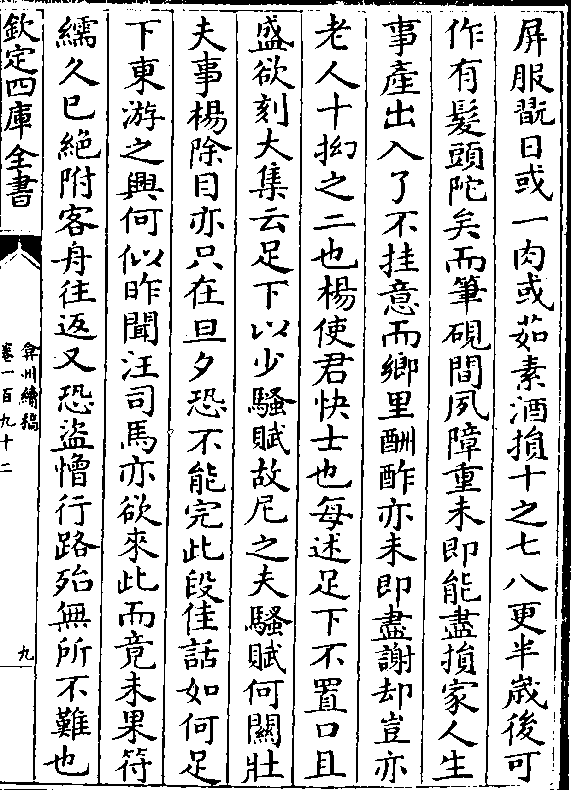 屏服翫日或一肉或茹素酒損十之七八更半歲後可
作有髮頭陀矣而筆硯間夙障重未即能盡損家人生
事產出入了不挂意而鄉里酬酢亦未即盡謝却豈亦
老人十拗之二也楊使君快士也每述足下不置口且
盛欲刻大集云足下以少騷賦故尼之夫騷賦何關壯
夫事楊除目亦只在旦夕恐不能完此段佳話如何足
下東游之興何似昨聞汪司馬亦欲來此而竟未果符
繻久已絕附客舟往返又恐盜憎行路殆無所不難也
欽定四庫全書
弇州續稿
卷一百九十二
九